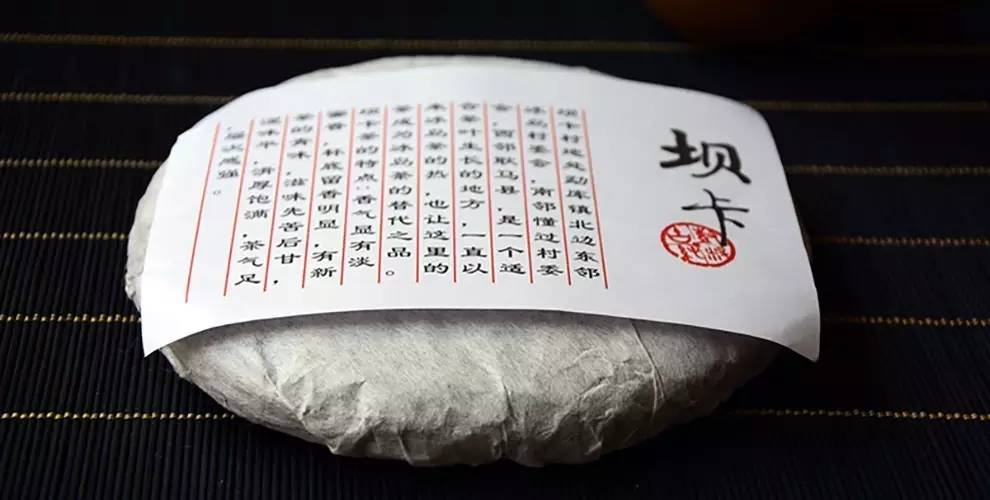 坝卡
坝卡村地处勐库镇北边东邻
冰岛村委会，南邻懂过村委
会，西邻耿马县，是一个适
合茶叶生长的地方，一直以
来冰岛茶的热，也让这里的
茶成为冰岛茶的替代之品。
坝卡茶的特点：香气显有淡
蜜香，杯底留香明显，有新
茶的青味，滋味先苦后甘，
涩味平，厚饱满，茶气足
，感强。